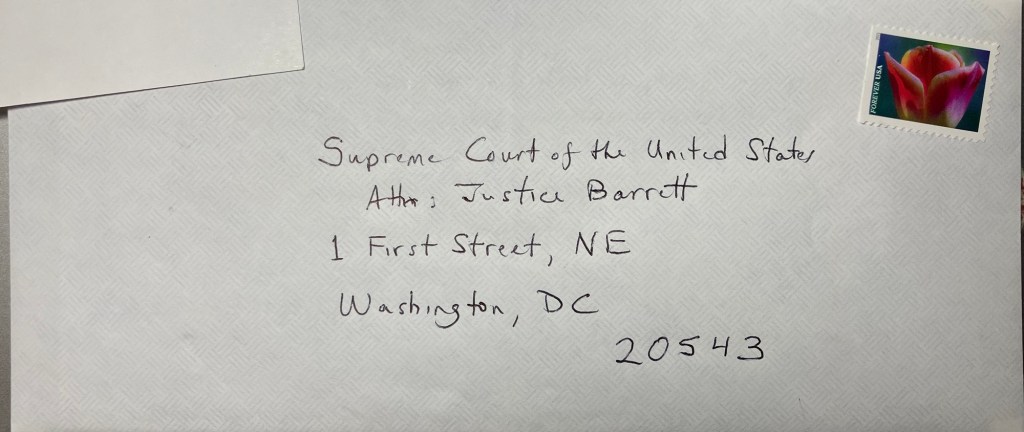 FOREVER USA
Supreme Court of the United States
Attn: Justice Barrett
1 First Street, NE
Washington, DC
20543